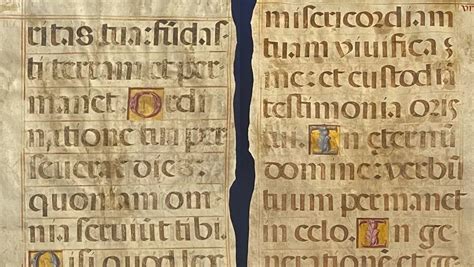 ritas tua: fūdas
ti terram et per
manet. Ordi
natione tua per
seuerat dies:
quoniam om
nia seruiūt tibi.
Nisi quod lex
misericordiam
tuam uiuifica
me: et custodiā
testimonia oris
tui. In eternū
domine: uerbū
tuum permanet
in celo. In ge